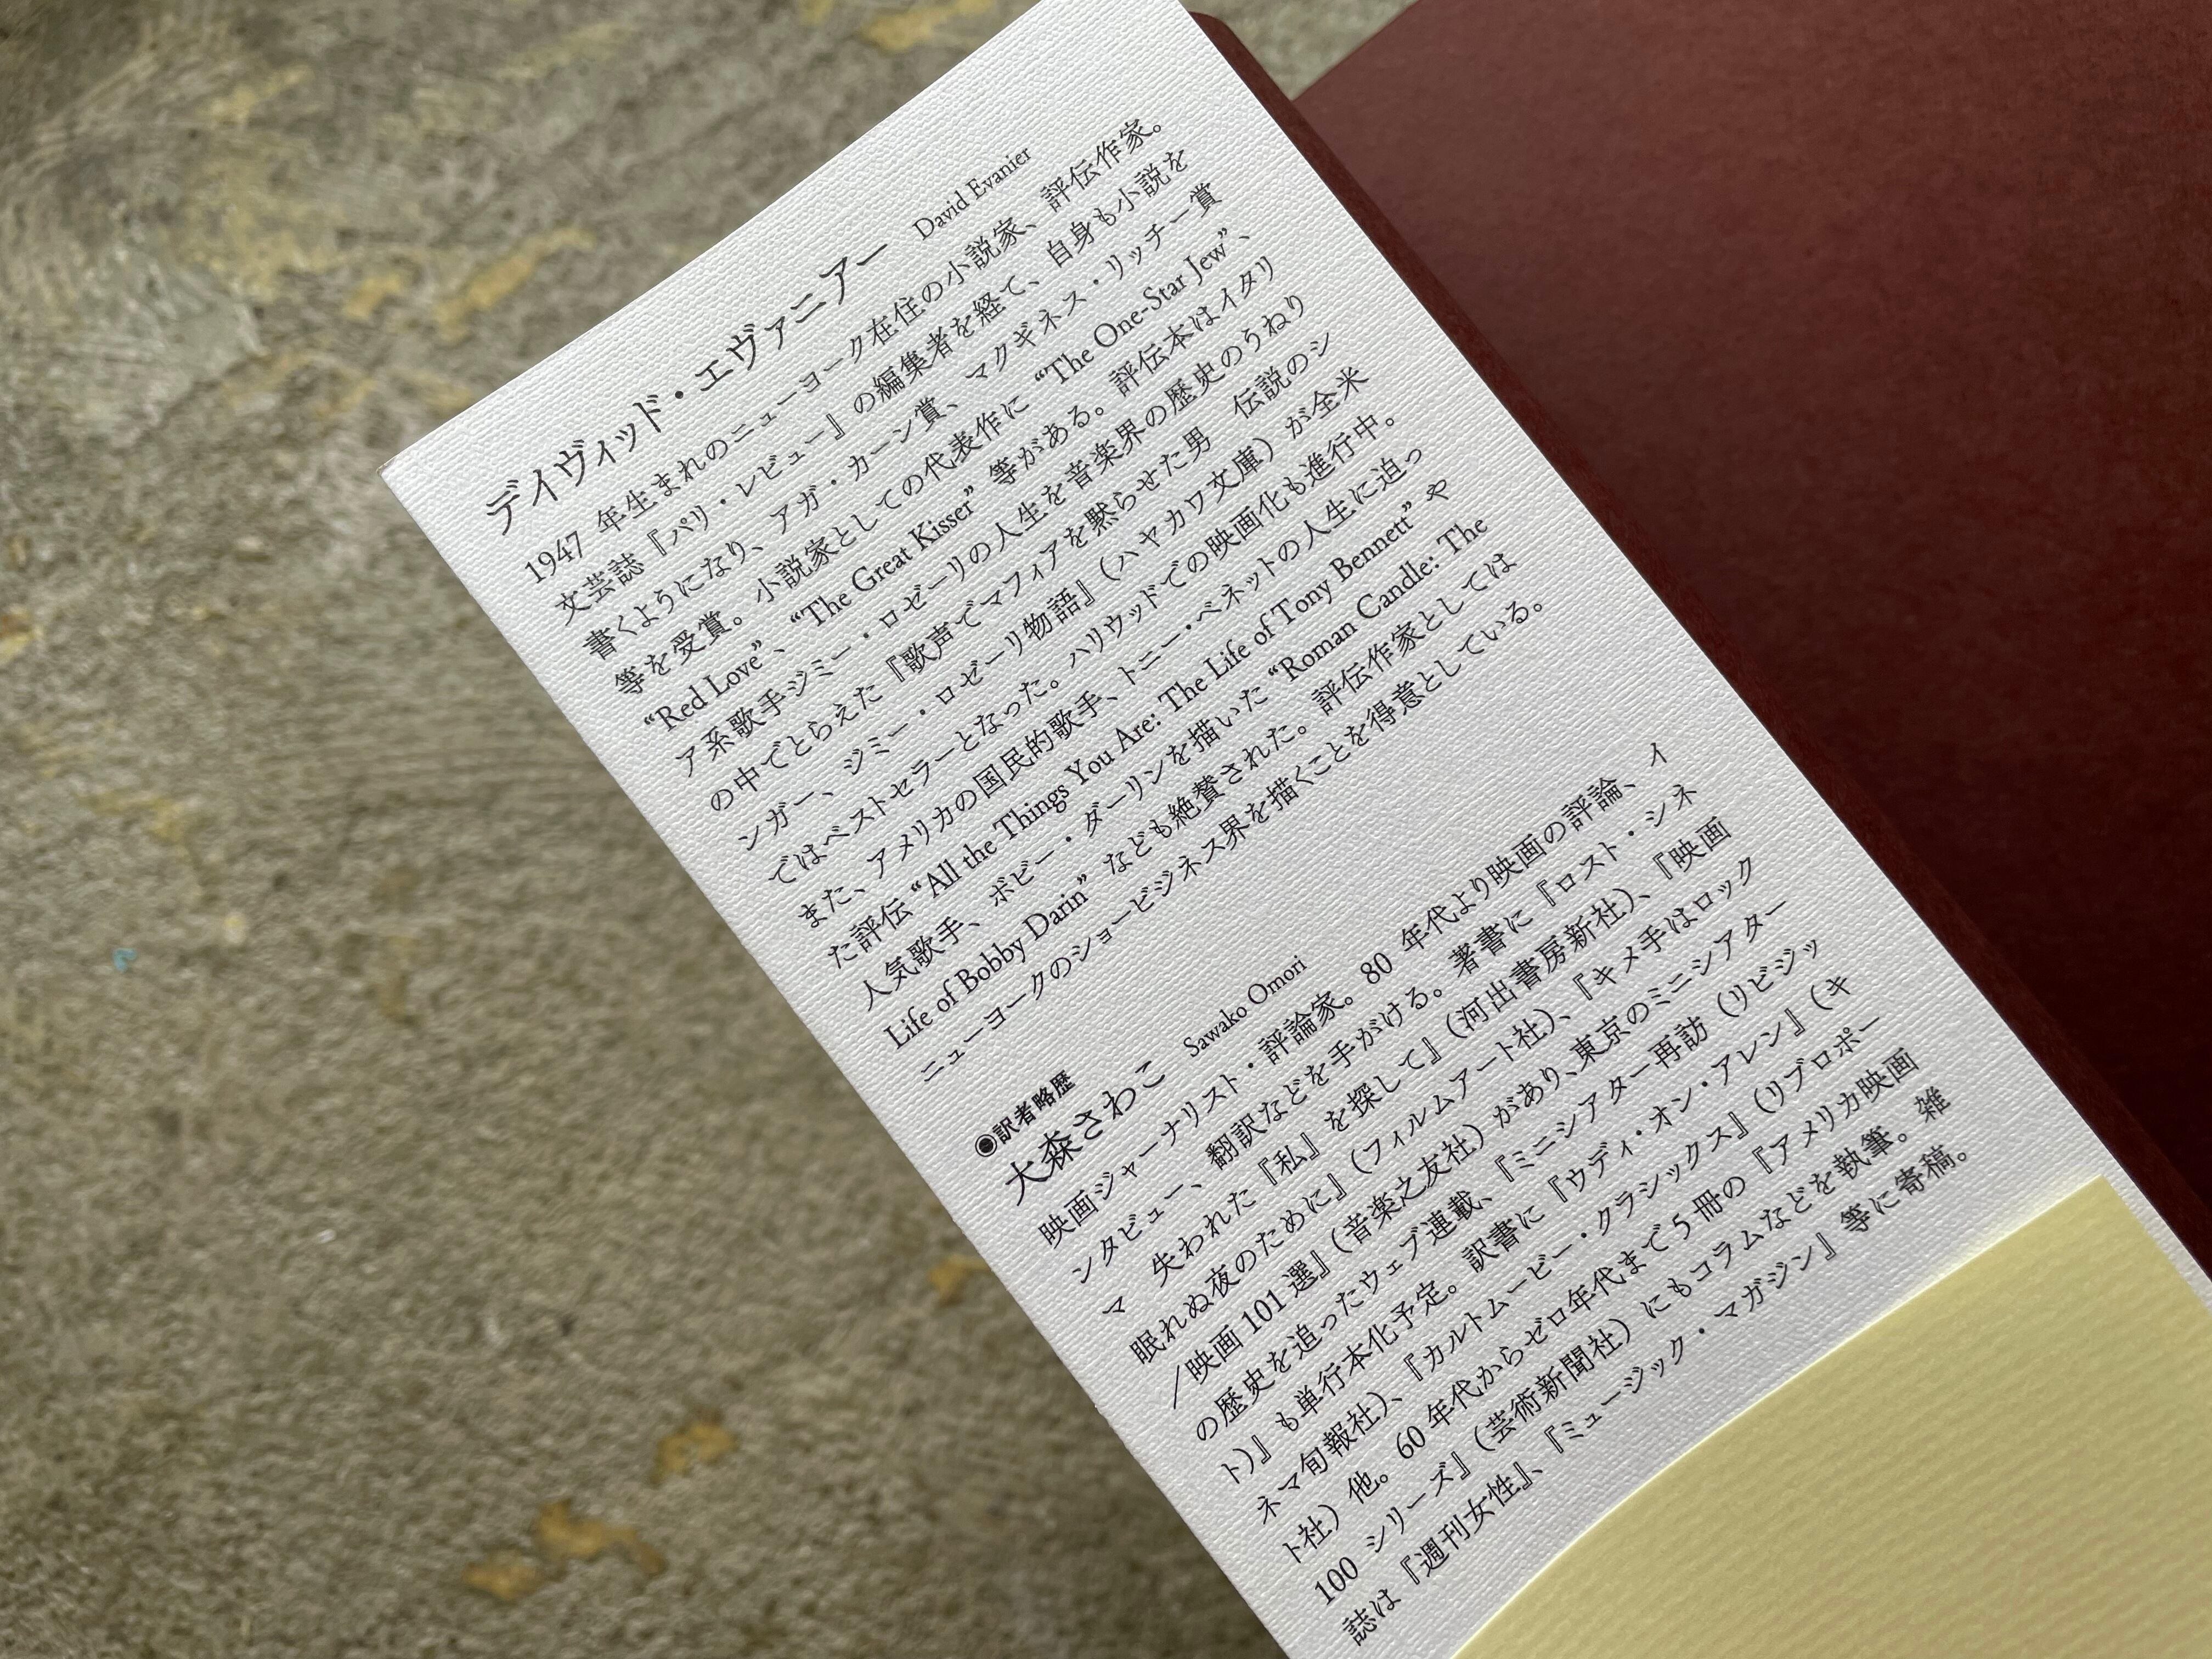 デイヴィッド・エヴァニアー David Evanier
1947 年生まれのニューヨーク在住の小説家、評伝作家。
文芸誌『パリ・レビュー』の編集者を経て、自身も小説を
書くようになり、アガ・カーン賞、マクギネス・リッチー賞
等を受賞。小説家としての代表作に “The One-Star Jew”、
“Red Love”、“The Great Kisser” 等がある。評伝本はイタリ
ア系歌手ジミー・ロゼーリの人生を音楽界の歴史のうねり
の中でとらえた『歌声でマフィアを黙らせた男　伝説のシ
ンガー、ジミー・ロゼーリ物語』（ハヤカワ文庫）が全米
ではベストセラーとなった。ハリウッドでの映画化も進行中。
また、アメリカの国民的歌手、トニー・ベネットの人生に迫っ
た評伝 “All the Things You Are: The Life of Tony Bennett” や
人気歌手、ボビー・ダーリンを描いた “Roman Candle: The
Life of Bobby Darin” なども絶賛された。評伝作家としては
ニューヨークのショービジネス界を描くことを得意としている。
◉訳者略歴
大森さわこ Sawako Omori
映画ジャーナリスト・評論家。80 年代より映画の評論、イ
ンタビュー、翻訳などを手がける。著書に『ロスト・シネ
マ　失われた『私』を探して』（河出書房新社）、『映画
眠れぬ夜のために』（フィルムアート社）、『キメ手はロック
／映画 101 選』（音楽之友社）があり、東京のミニシアター
の歴史を追ったウェブ連載、『ミニシアター再訪（リビジッ
ト）』も単行本化予定。訳書に『ウディ・オン・アレン』（キ
ネマ旬報社）、『カルトムービー・クラシックス』（リブロポー
ト社）他。60 年代からゼロ年代まで 5 冊の『アメリカ映画
100 シリーズ』（芸術新聞社）にもコラムなどを執筆。雑
誌は『週刊女性』、『ミュージック・マガジン』等に寄稿。